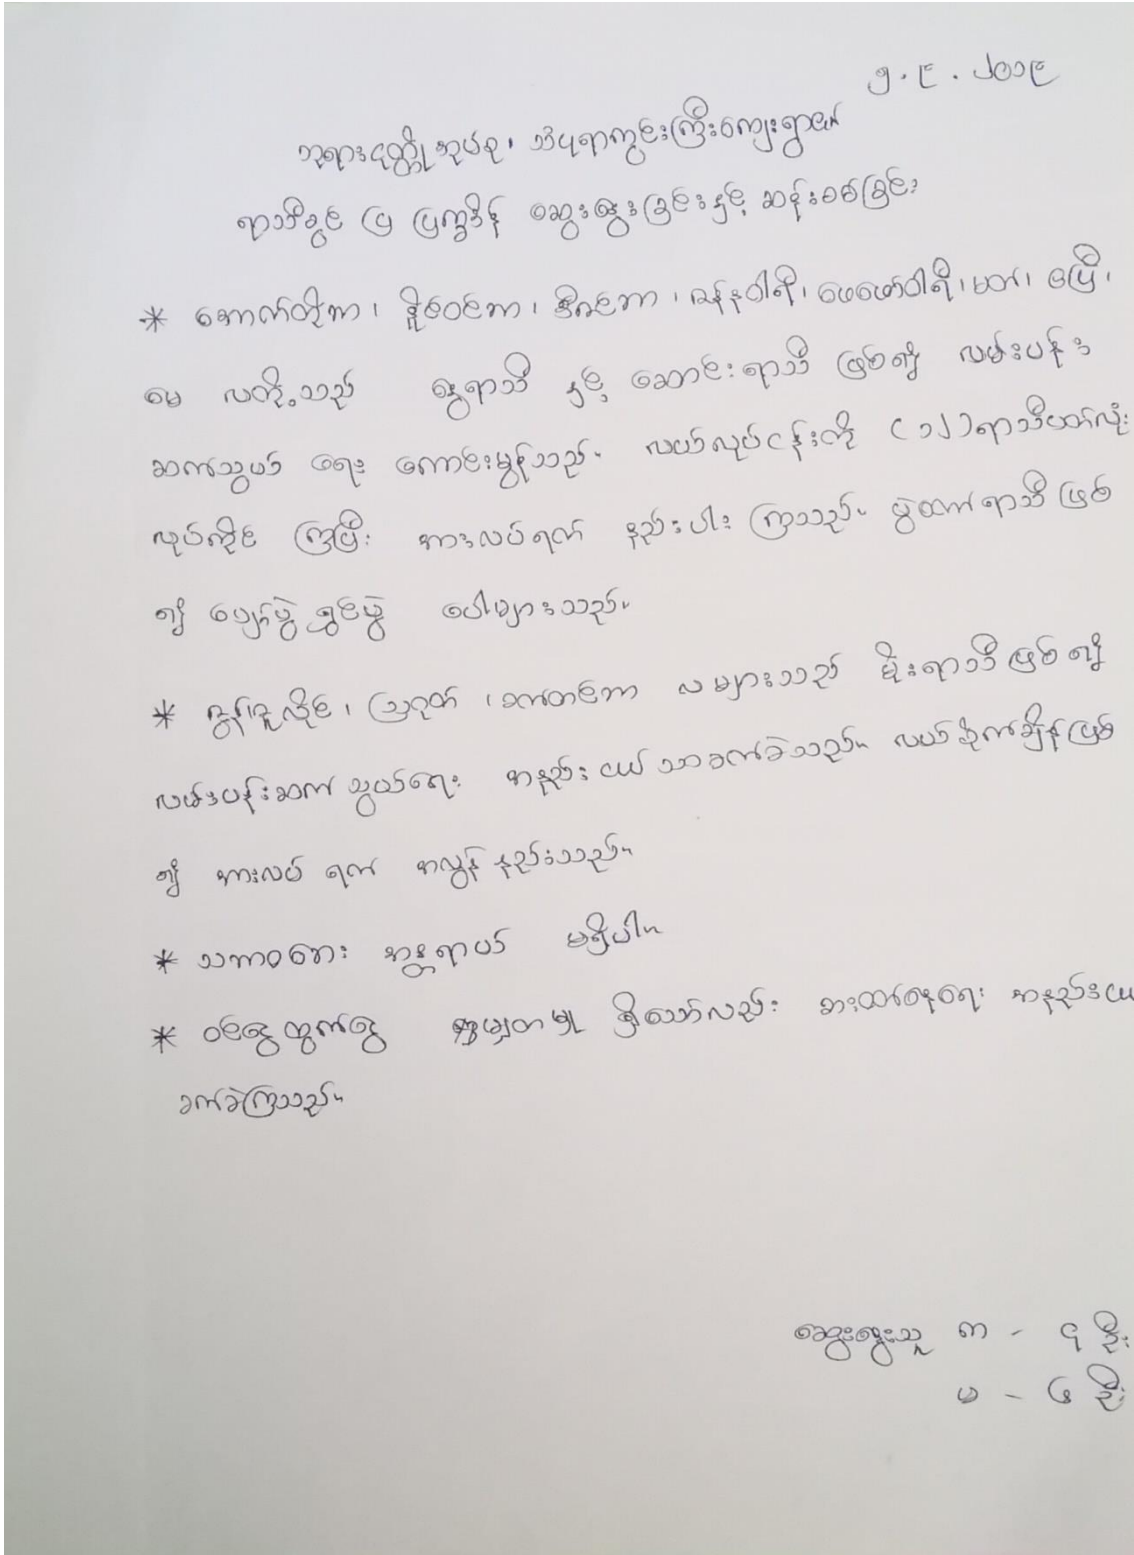 ၅.၉.၂၀၁၉
ဘုရားငုတ္တိုအုပ်စု၊ သံပုရာကွင်းကြီးကျေးရွာ၏
ရာသီခွင် ပြ ပြက္ခဒိန် ဆွေးနွေးခြင်းနှင့် ဆန်းစစ်ခြင်း
* အောက်တိုဘာ၊ နိုဝင်ဘာ၊ ဒီဇင်ဘာ၊ ဇန်နဝါရီ၊ ဖေဖော်ဝါရီ၊ မတ်၊ ဧပြီ၊
မေ လတို့သည် နွေရာသီ နှင့် ဆောင်းရာသီ ဖြစ်၍ လမ်းပန်း
ဆက်သွယ် ရေး ကောင်းမွန်သည်။ လယ်လုပ်ငန်းကို (၁၂)ရာသီပတ်လုံး
လုပ်ကိုင် ကြပြီး အားလပ်ရက် နည်းပါး ကြသည်။ ပွဲတော်ရာသီ ဖြစ်
၍ ပျော်ပွဲ ရွှင်ပွဲ ပေါများသည်။
* ဇွန်၊ဇူလိုင်၊ ဩဂုတ် ၊စက်တင်ဘာ လ များသည် မိုးရာသီ ဖြစ် ၍
လမ်းပန်းဆက် သွယ်ရေး အနည်း ငယ် သာခက်ခဲသည်။ လယ်စိုက်ချိန် ဖြစ်
၍ အားလပ် ရက် အလွန် နည်းသည်။
* သဘာဝဘေး အန္တရာယ် မရှိပါ။
* ဝင်ငွေ ထွက်ငွေ မျှတမှု ရှိသော်လည်း စားဝတ်နေရေး အနည်းငယ်
ခက်ခဲကြသည်။
ဆွေးနွေးသူ ကျား - ၄ ဦး
မ - ၆ ဦး